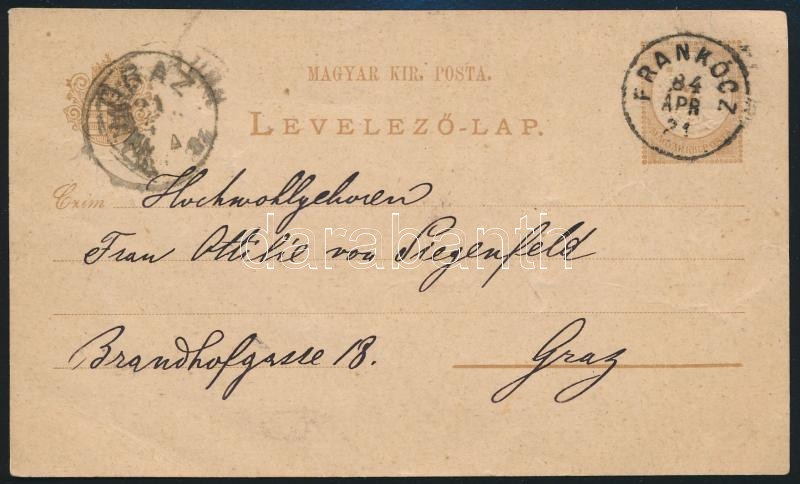 MAGYAR KIR. POSTA.
LEVELEZŐ-LAP.
FRANKÓCZ
84
APR
21
GRAZ
21
4
84
Czim
Hochwohlgeboren
Frau Ottilie von Siegenfeld
Brandhofgasse 18. Graz
darabanth